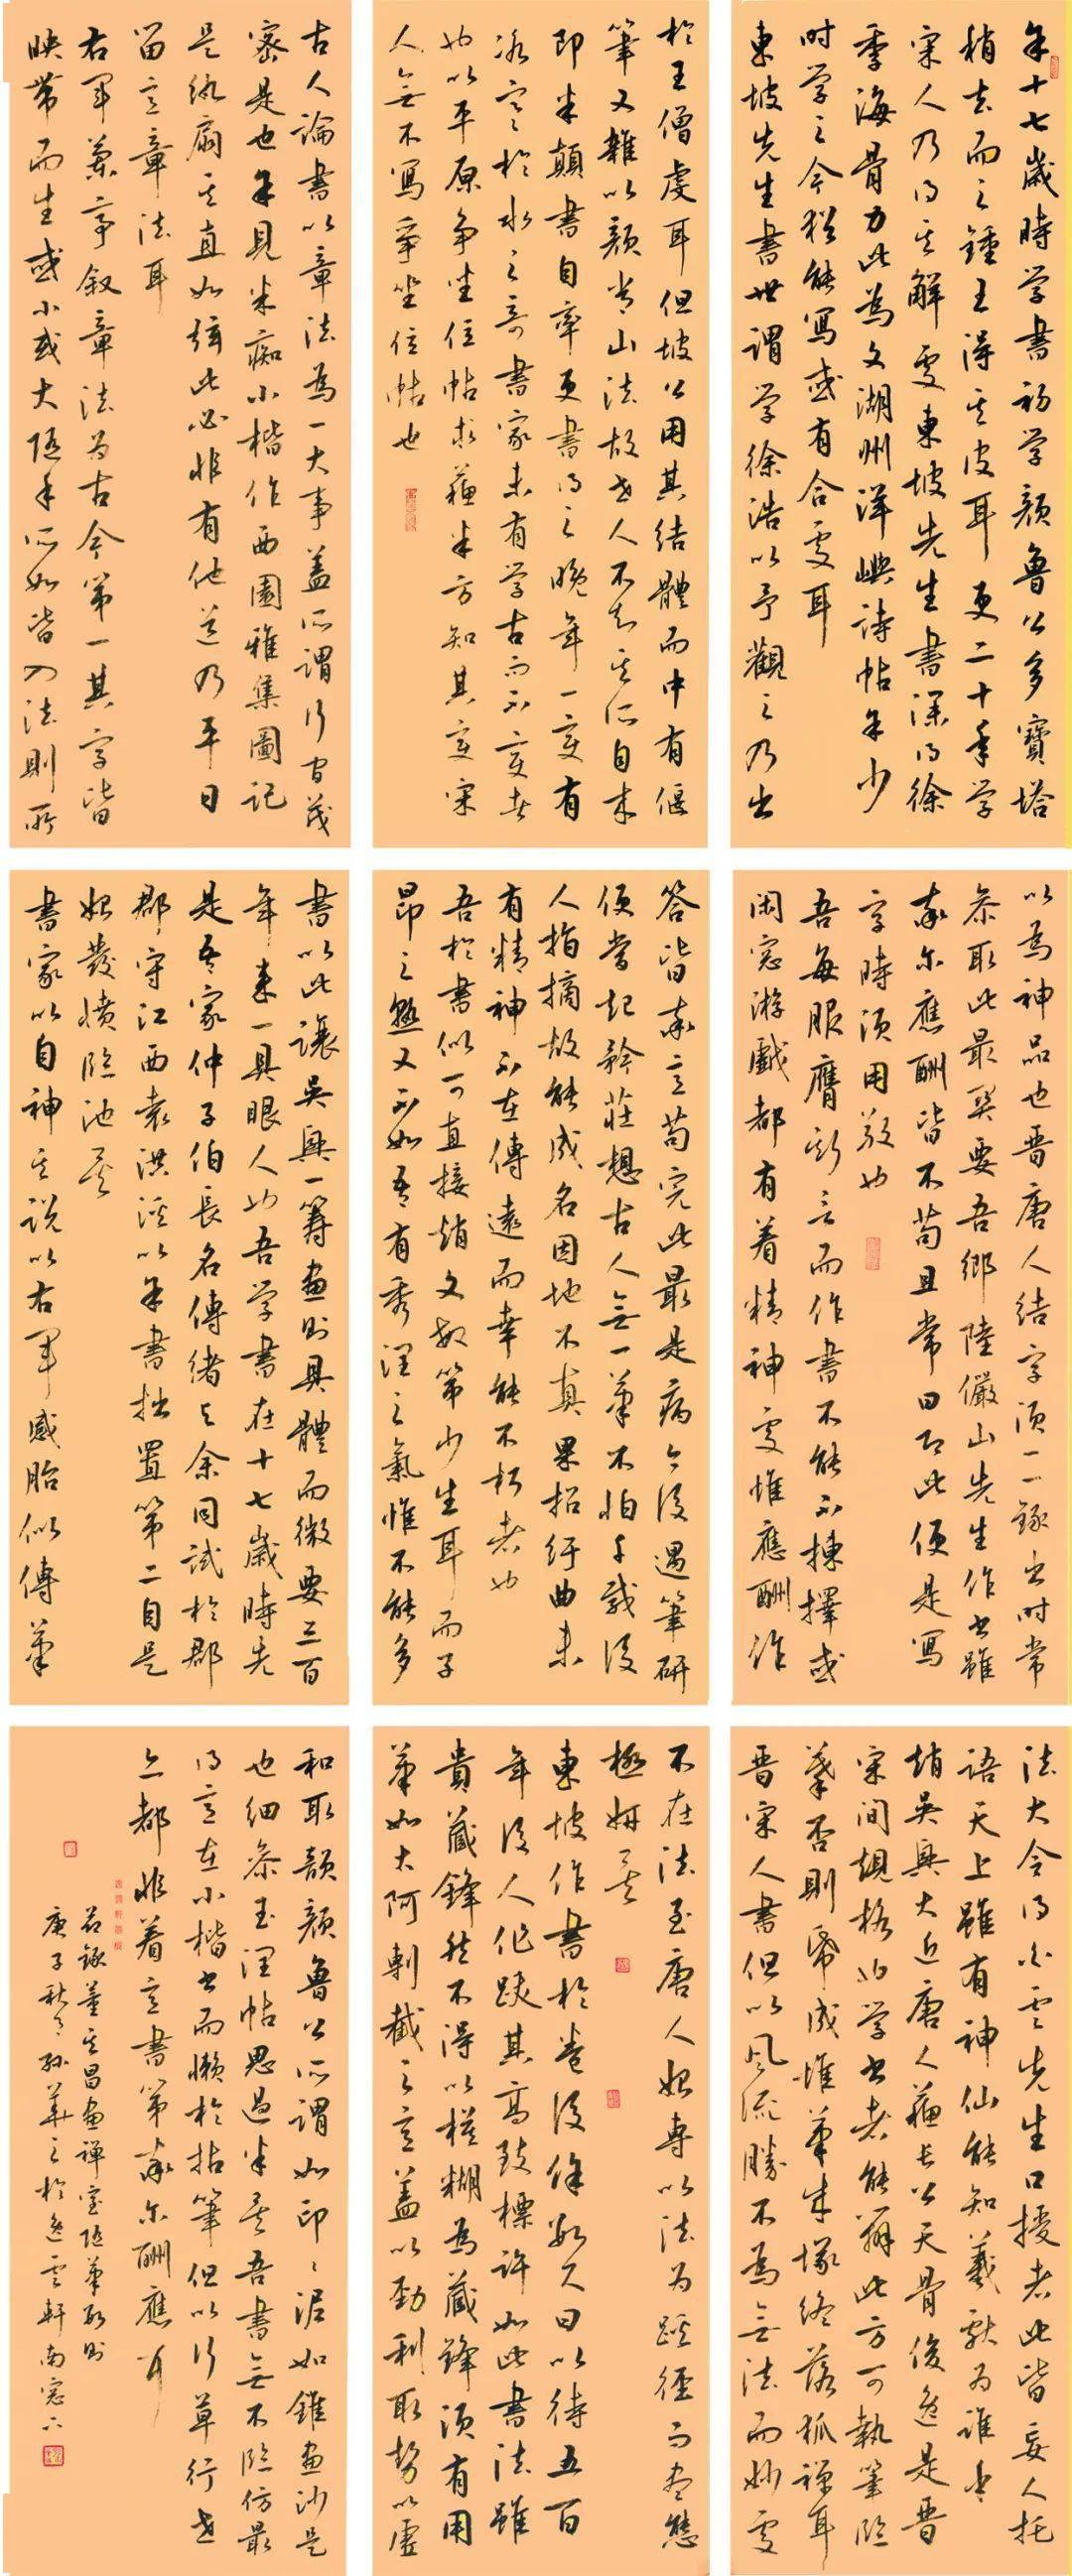 余十七歲時学書初学顔魯公多寶塔
稍去而之鍾王得其皮耳更二十年学
宋人乃得其解處東坡先生書深得徐
季海骨力此為文湖州洋嶼詩帖余少
时学之今猶能寫或有合處耳
東坡先生書世謂学徐浩以予觀之乃出
於王僧虔耳但坡公用其结體而中有偃
筆又雜以顔常山法故世人不知其所自来
即米顛書自率更書得之晚年一變有
冰寒於水之奇書家未有学古而不變者
也以平原争坐位帖求蘇米方知其變宋
人無不寫爭坐位帖也
古人論書以章法為一大事盖所謂行间茂
密是也余見米痴小楷作西園雅集圖記
是纨扇其直如弦此必非有他道乃平日
留意章法耳
右軍蘭亭叙章法为古今第一其字皆
映带而生或小或大随手所如皆入法則所
以為神品也晋唐人结字须一一録出时常
参取此最關要吾鄉陸儼山先生作书雖
率尔應酬皆不苟且常曰即此便是寫
字時须用敬也
吾每服膺斯言而作書不能不揀擇或
闲窓游戲都有着精神處惟應酬作
答皆率意苟完此最是病今後遇筆研
便當起矜莊想古人無一筆不怕千載後
人指摘故能成名因地不真果招纡曲未
有精神不在傳遠而幸能不朽者也
吾於書似可直接趙文敏第少生耳而子
昂之熟又不如吾有秀潤之氣惟不能多
書以此讓吴興一籌畫則具體而微要三百
年来一具眼人也吾学書在十七歲時先
是吾家仲子伯長名傳绪与余同試於郡
郡守江西袁洪溪以余書拙置第二自是
始發憤臨池矣
書家以自神其説以右軍感胎似傳筆
法大令得白雲先生口授者此皆妄人托
語天上雖有神仙能知羲献为誰乎
趙吴興大近唐人蘇长公天骨俊逸是晋
宋间規格也学书者能辨此方可執筆臨
摹否則帋成堆筆成塚終落狐禅耳
晋宋人書但以風流勝不為無法而妙處
不在法至唐人始專以法为蹊徑而尽態
極妍矣
東坡作書於卷後余数尺曰以待五百
年後人作跋其高致標许如此書法雖
貴藏鋒然不得以模糊為藏鋒须有用
筆如太阿剸截之意盖以劲利取势以虚
和取韻顔魯公所謂如印印泥如錐畫沙是
也细参玉润帖思过半矣吾書無不臨仿最
得意在小楷书而懒於拈筆但以行草行世
亦都非着意書第率尔酬應耳
節録董其昌畫禅室随筆数則
庚子秋月孫華之於逸雲軒南窓下